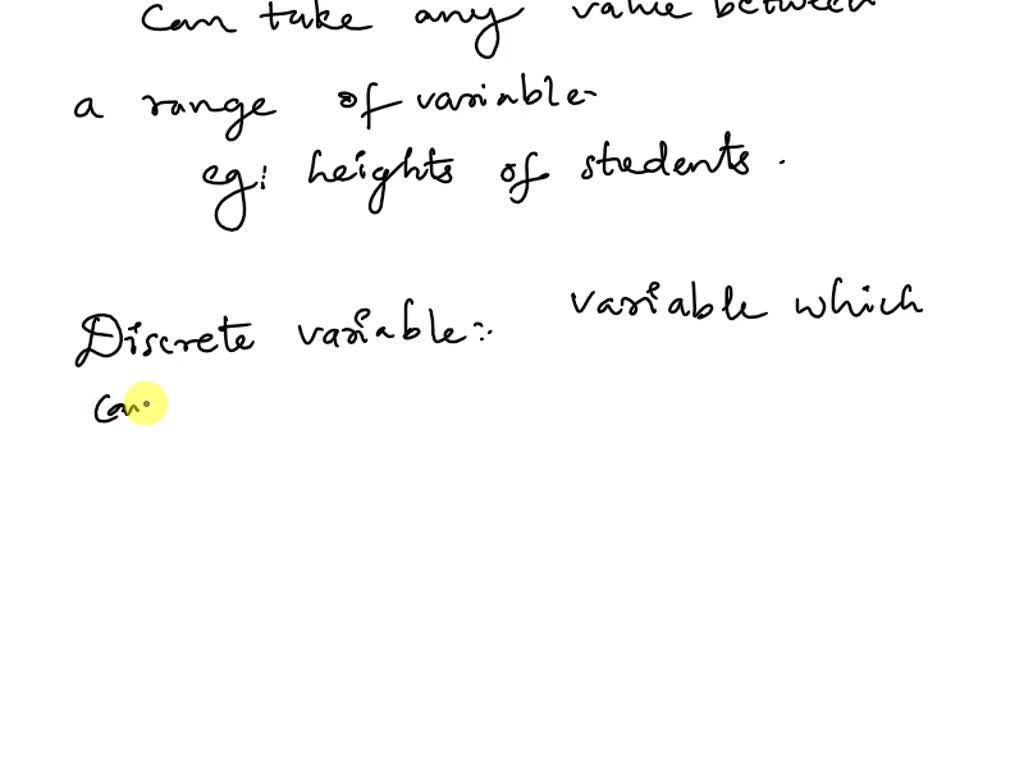 Can take any value between
a range of variable-
eg: heights of students.
Discrete variable:- variable which
Can